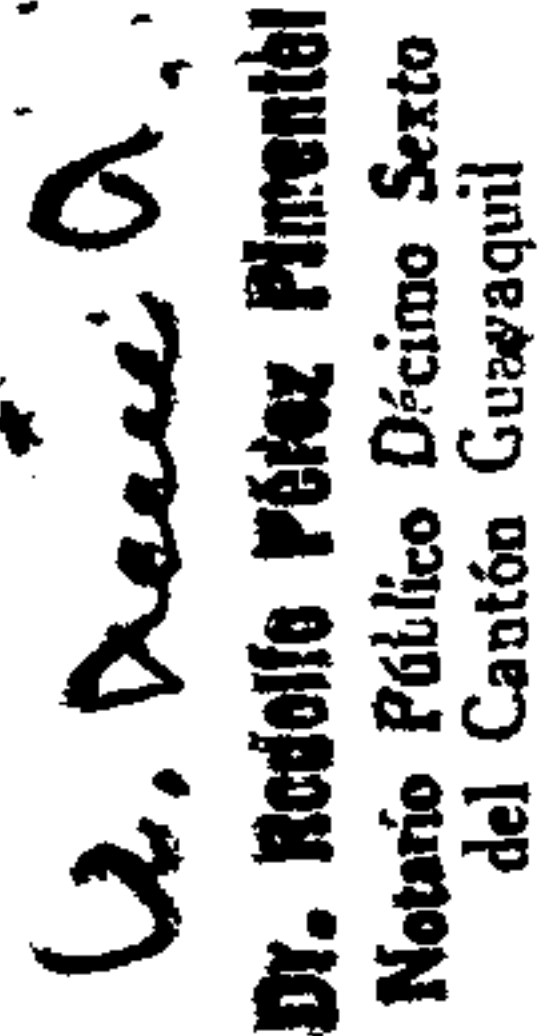 Dr. Rodolfo Pérez Pimentel
Notario Público Décimo Sexto
del Cantón Guayaquil